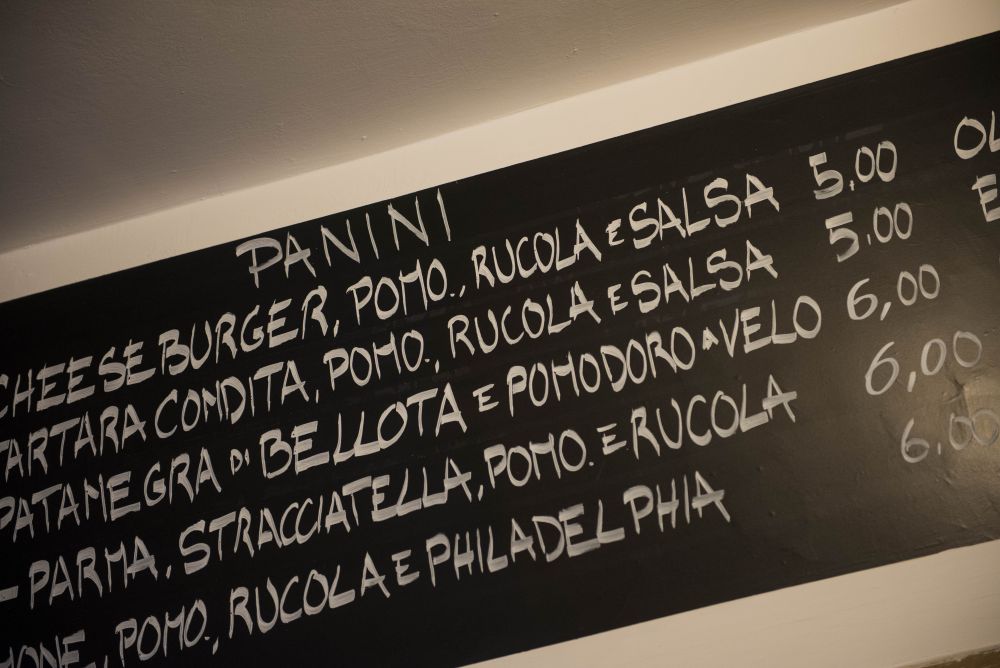 PANINI
CHEESEBURGER, POMO., RUCOLA E SALSA 5.00
TARTARA CONDITA, POMO., RUCOLA E SALSA 5.00
PATANEGRA DI BELLOTA E POMODORO A VELO 6,00
- PARMA, STRACCIATELLA, POMO. E RUCOLA 6,00
POMO., RUCOLA E PHILADELPHIA 6.00